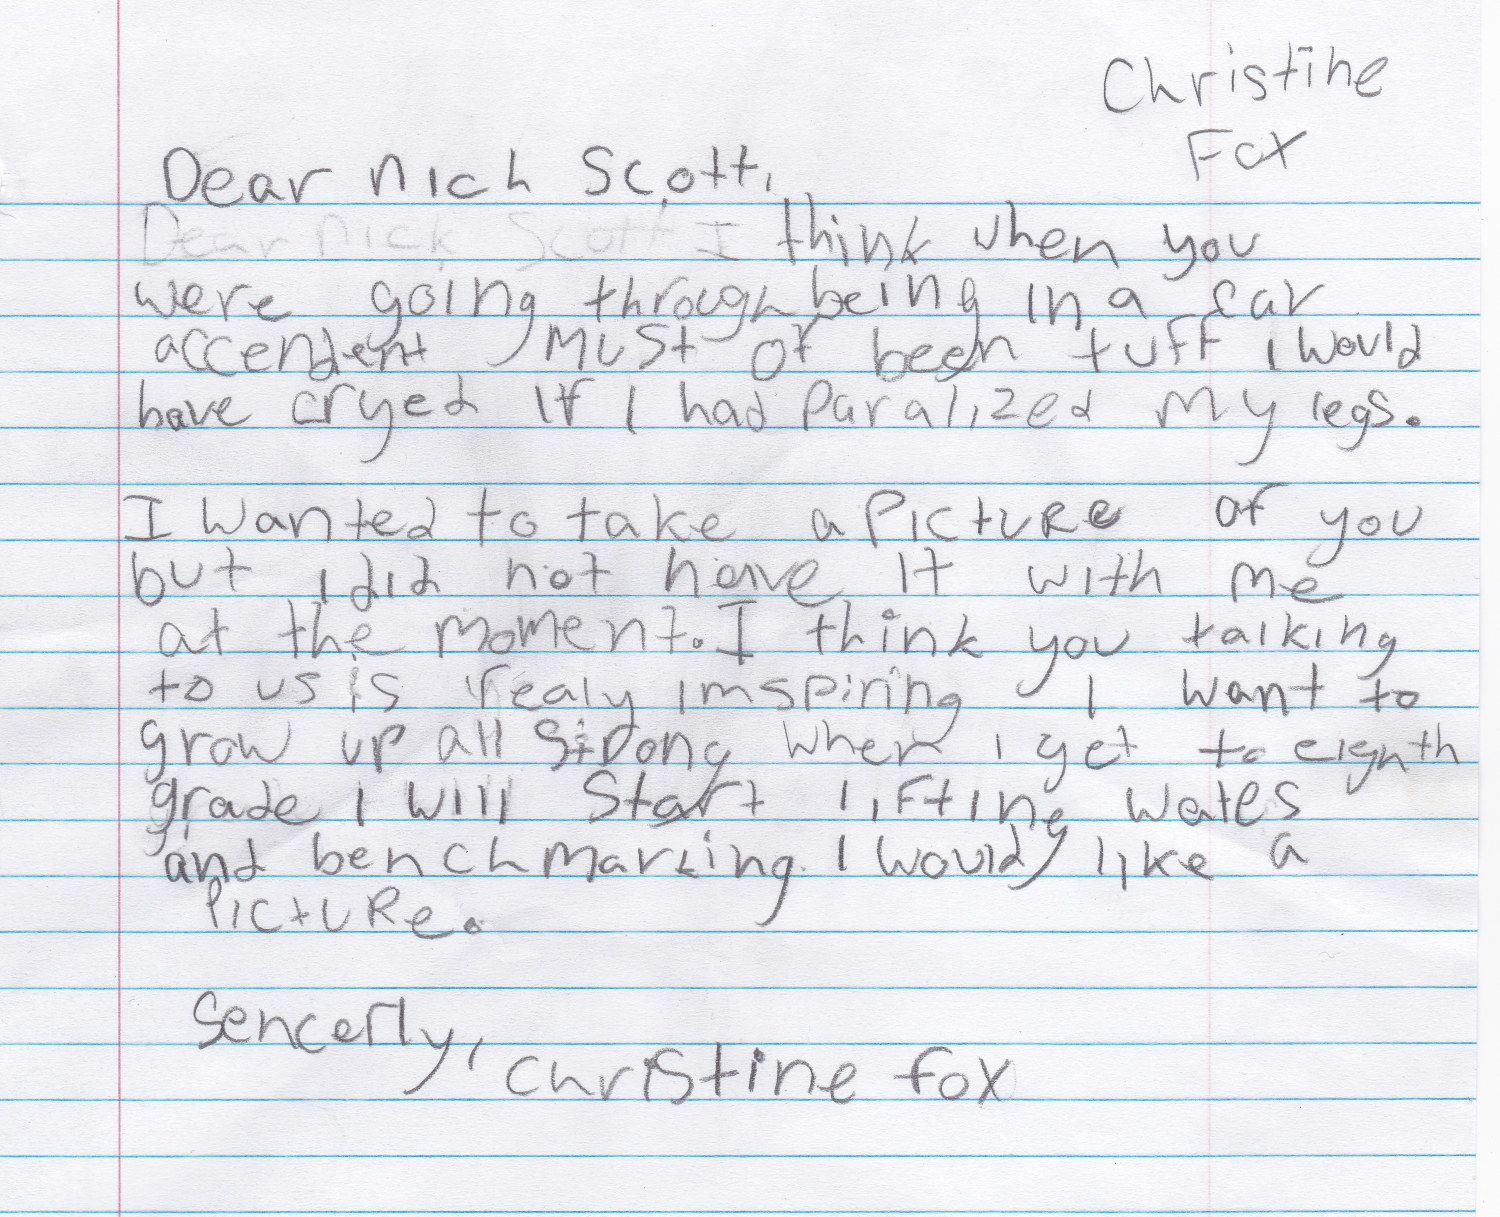 Christine
Fox
Dear Nich Scott,
Dear Nick Scott I think when you
were going through being in a car
accendent must of been tuff i would
have cryed if I had paralized my legs.
I wanted to take a picture of you
but i did not have it with me
at the moment. I think you talking
to us is realy imspiring I want to
grow up all strong when i get to eighth
grade I will start lifting wates
and benchmarking. I would like a
picture.
Sencerly,
Christine fox